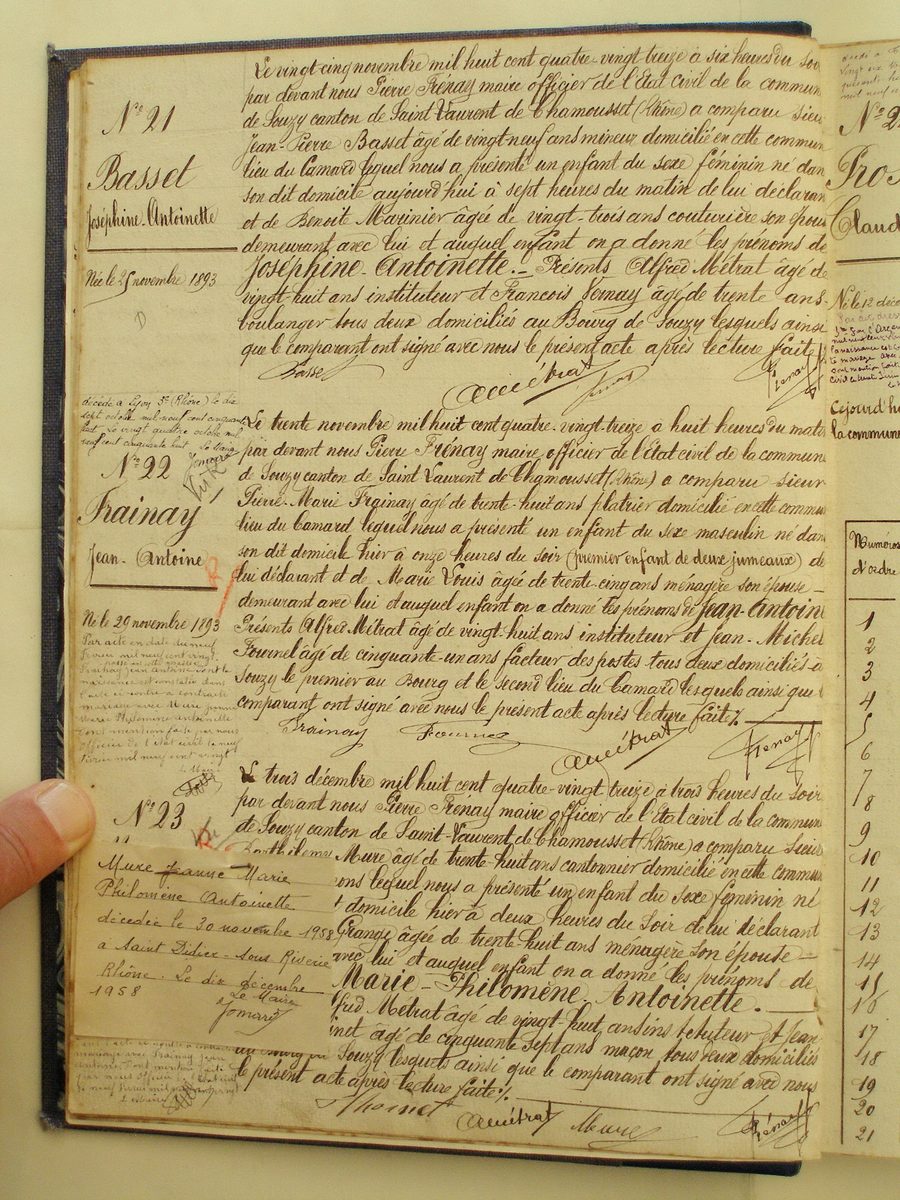 Le vingt-cinq novembre mil huit cent quatre-vingt treize à six heures du soir
par devant nous Pierre Frénay maire officier de l'Etat civil de la commun
de Souzy canton de Saint Laurent de Chamousset (Rhône) a comparu sieur
Jean-Pierre Basset âgé de vingt neuf ans mineur domicilié en cette commun
lieu du Camard lequel nous a présenté un enfant du sexe féminin né dan
son dit domicile aujourd'hui à sept heures du matin de lui déclaran
et de Benoit Marinier âgée de vingt-trois ans couturière son épous
demeurant avec lui et auquel enfant on a donné les prénoms de
Joséphine-Antoinette. _ Présents Alfred Métrat âgé de
vingt-huit ans instituteur et Francois Vernay âgé de trente ans
boulanger tous deux domiciliés au Bourg de Souzy lesquels ainsi
que le comparant ont signé avec nous le présent acte après lecture faite
Basset
AMétrat
Frénay
N° 21
Basset
Joséphine-Antoinette
Née le 25 novembre 1893
D
décédé à Lyon 5e (Rhône) le dix
sept octobre mil neuf cent cinquante
huit Le vingt quatre octobre mil
neuf cent cinquante huit Le Maire
Jomard
N° 22
Frainay
Jean-Antoine
Né le 29 novembre 1893
Par acte en date du neuf
Février mil neuf cent vingt
passé en cette mairie
Frainay Jean Antoine dont la
naissance est constatée dans
l'acte ci contre a contracté
mariage avec Mure Jeanne
Marie Philomène Antoinette
Dont mention faite par nous
officier de l'état civil le neuf
Février mil neuf cent vingt
Le Maire
Le trente novembre mil huit cent quatre-vingt treize à huit heures du mati
par devant nous Pierre Frénay maire officier de l'Etat civil de la commun
de Souzy canton de Saint Laurent de Chamousset (Rhône) a comparu sieur
Pierre-Marie Frainay âgé de trente-huit ans platrier domicilié en cette commu
lieu du Camard lequel nous a présenté un enfant du sexe masculin né dan
son dit domicile hier à onze heures du soir (premier enfant de deux jumeaux) de
lui déclarant et de Marie Louis âgée de trente-cinq ans ménagère son épouse
demeurant avec lui et auquel enfant on a donné les prénoms de Jean-Antoin
Présents Alfred Métrat âgé de vingt-huit ans instituteur et Jean-Michel
Fournel âgé de cinquante-un ans facteur des postes tous deux domiciliés à
Souzy le premier au Bourg et le second lieu du Camard lesquels ainsi que l
comparant ont signé avec nous le présent acte après lecture faite
Frainay
Fournel
AMétrat
Frénay
N° 23
Mure Jeanne Marie
Philomène Antoinette
décédée le 30 novembre 1958
à Saint Didier-sous Riverie
Rhône. Le dix décembre
1958
Le Maire
Jomard
mariage avec Frainay Jean
Antoine. Dont mention faite
par nous officier de l'état civil
le neuf Février mil neuf cent vingt
Le Maire
Le trois décembre mil huit cent quatre-vingt treize à trois heures du soir
par devant nous Pierre Frénay maire officier de l'Etat civil de la commun
de Souzy canton de Saint-Laurent de Chamousset (Rhône) a comparu Sieur
Barthélemy Mure âgé de trente huit ans cantonnier domicilié en cette commun
ons lequel nous a présenté un enfant du sexe féminin né
domicile hier à deux heures du soir de lui déclarant
Grange âgée de trente huit ans ménagère son épouse
avec lui et auquel enfant on a donné les prénoms de
Marie-Philomène Antoinette.
fred Métrat âgé de vingt-huit ans instituteur et Jean
inet âgé de cinquante sept ans maçon tous deux domiciliés
au Bourg de Souzy lesquels ainsi que le comparant ont signé avec nous
le présent acte après lecture faite
AMétrat
Mure
Frénay
N° 2
Claud
Né le 12 déce
Cejourd'hu
la commune
Numéros
d'ordre
1
2
3
4
5
6
7
8
9
10
11
12
13
14
15
16
17
18
19
20
21